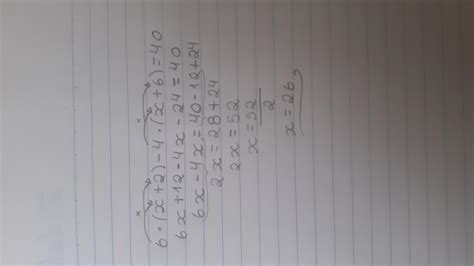 x x
6 • (x+2) - 4 • (x+6) = 40
6x + 12 - 4x - 24 = 40
6x - 4x = 40 - 12 + 24
2x = 28 + 24
2x = 52
x = 52/2
x = 26,